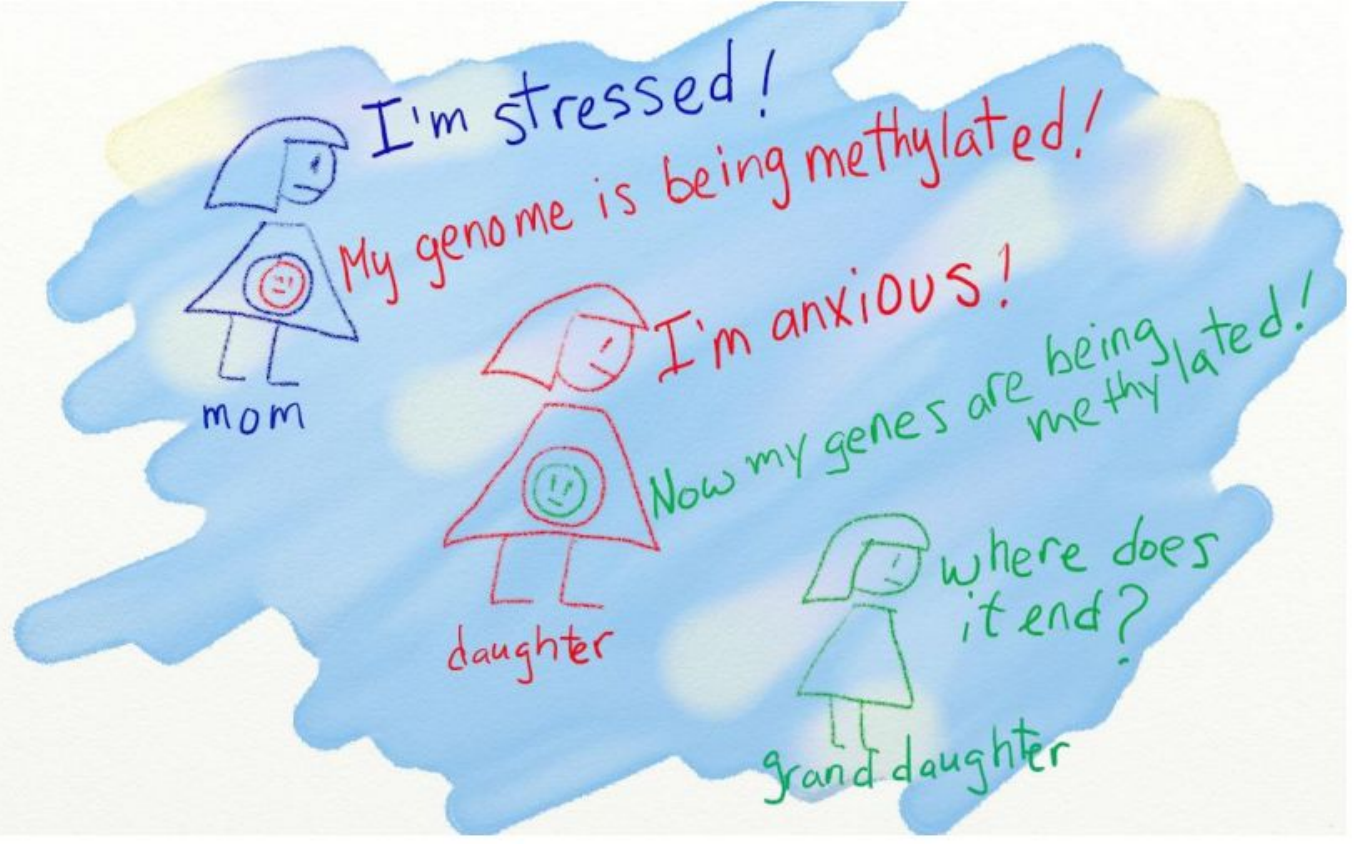 I'm stressed!
My genome is being methylated!
mom
I'm anxious!
Now my genes are being
methylated!
daughter
where does
it end?
grand daughter